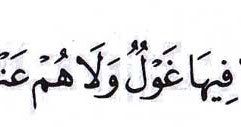 فِيهَا غَوْلٌ وَلَا هُمْ عَنْ